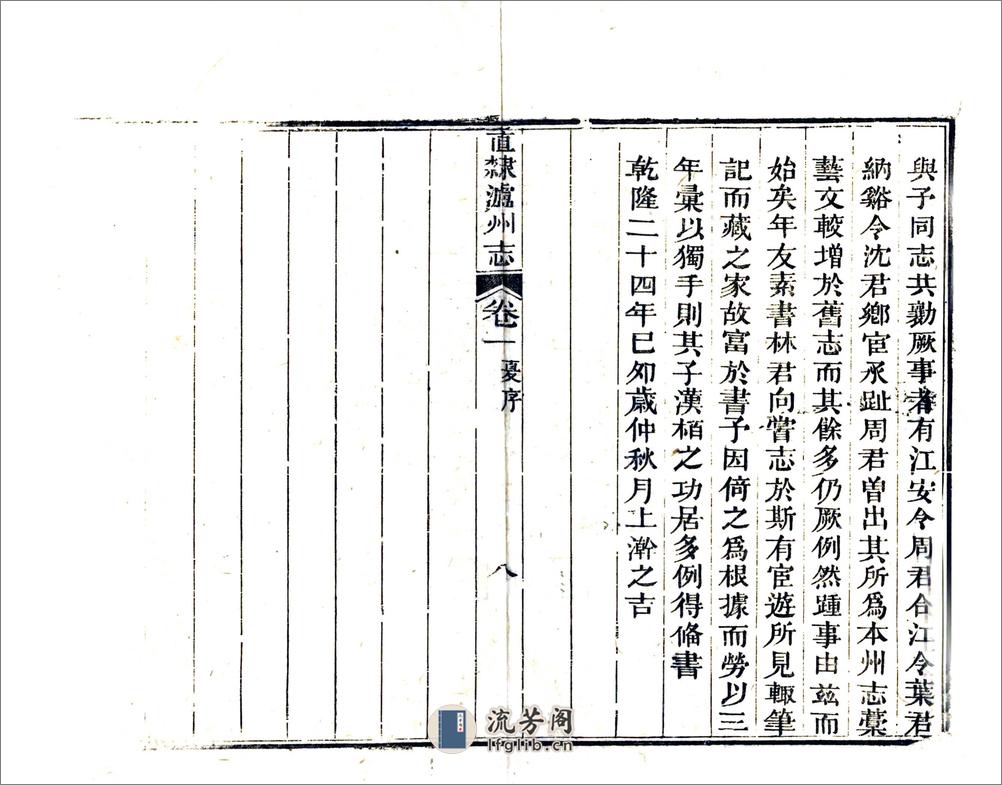 與予同志共勷厥事者有江安令周君合江令葉君
納谿令沈君鄉宦丞趾周君曽出其所爲本州志藁
藝文較增於舊志而其餘多仍厥例然踵事由玆而
始矣年友素書林君向嘗志於斯有宦遊所見輙筆
記而藏之家故富於書予因倚之爲根據而勞以三
年彚以獨手則其子漢栢之功居多例得俻書
乾隆二十四年巳夘歲仲秋月上澣之吉
直隸瀘州志 卷一 夏序 八
流芳阁
lfglib.cn